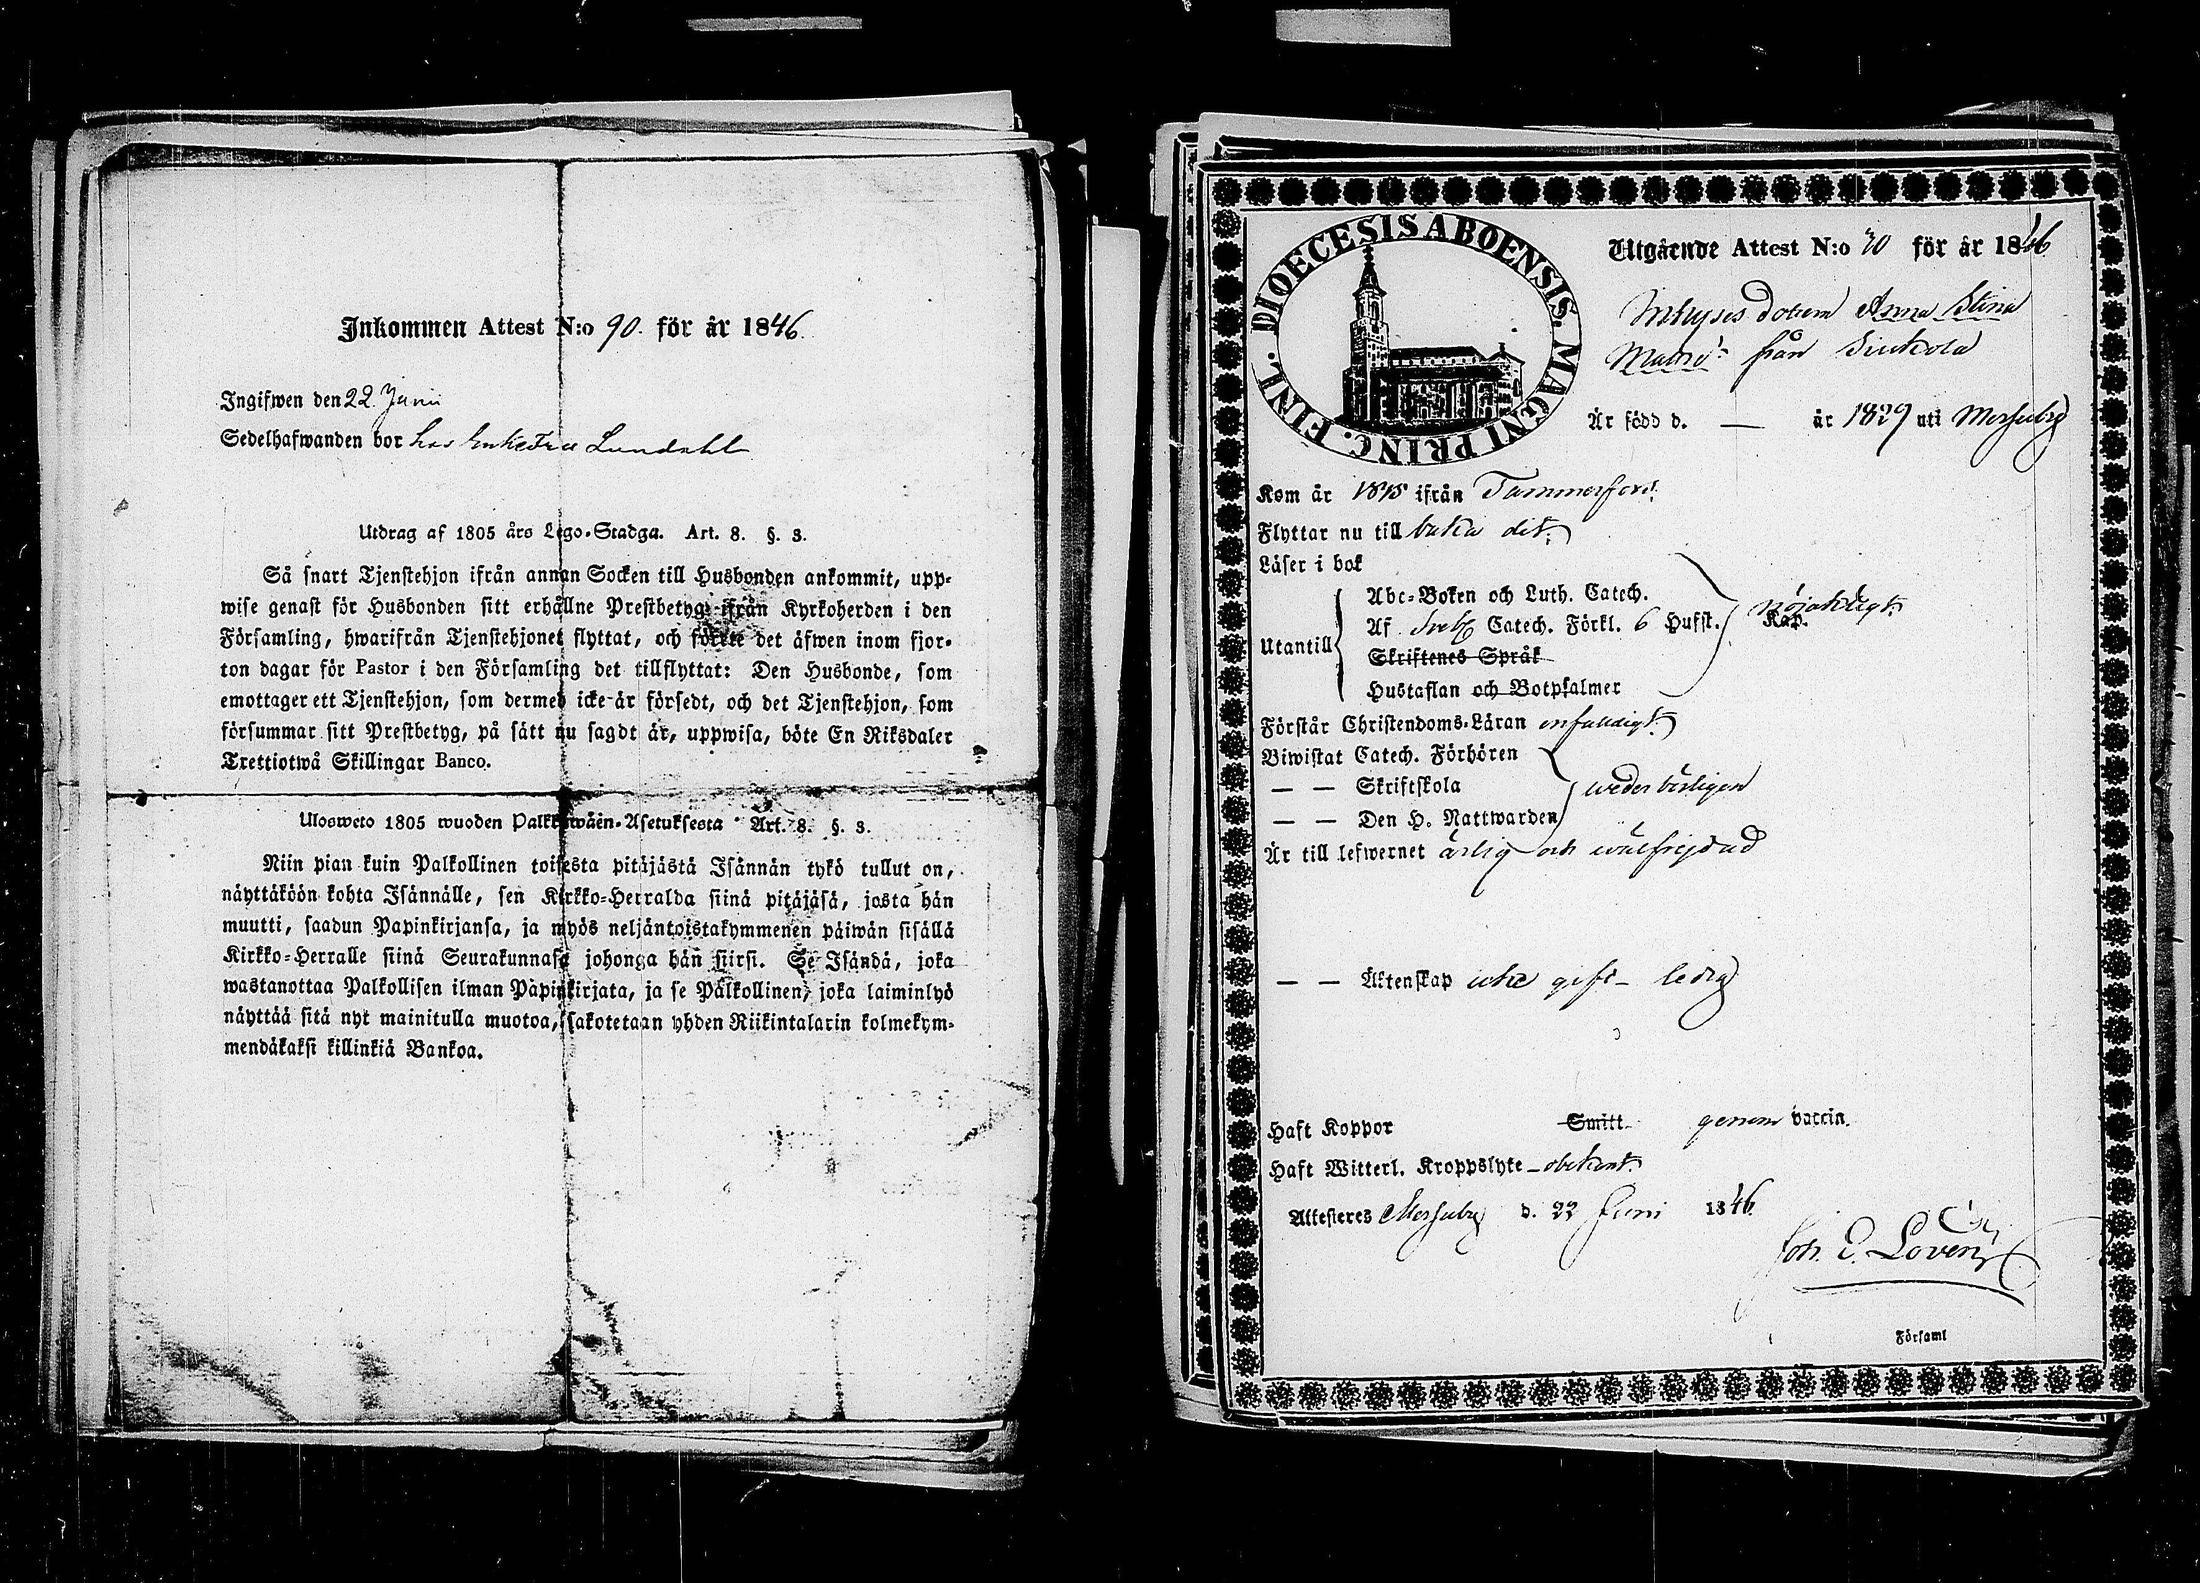 Inkommen Attest N:o 90. för år 1846.
Ingifwen den 22 Juni
Sedelhafwanden bor hos Enkefru Lundahl
Utdrag af 1805 års Lego-Stadga. Art. 8. §. 3.
Så snart Tjenstehjon ifrån annan Socken till Husbonden ankommit, upp-
wise genast för Husbonden sitt erhållne Prestbetyg ifrån Kyrkoherden i den
Församling, hwarifrån Tjenstehjonet flyttat, och förete det äfwen inom fjor-
ton dagar för Pastor i den Församling det tillflyttat: Den Husbonde, som
emottager ett Tjenstehjon, som dermed icke är försedt, och det Tjenstehjon, som
försummar sitt Prestbetyg, på sätt nu sagdt är, uppwisa, böte En Riksdaler
Trettiotwå Skillingar Banco.
Ulosweto 1805 wuoden Palkkawäen-Asetuksesta Art. 8. §. 3.
Niin pian kuin Palkollinen toisesta pitäjästä Isännän tykö tullut on,
näyttäköön kohta Isännälle, sen Kirkko-Herralda siinä pitäjäsä, josta hän
muutti, saadun Papinkirjansa, ja myös neljäntoistakymmenen päiwän sisällä
Kirkko-Herralle siinä Seurakunnasa johonga hän siirsi. Se Isändä, joka
wastanottaa Palkollisen ilman Papinkirjata, ja se Palkollinen, joka laiminlyö
näyttää sitä nyt mainitulla muotoa, sakotetaan yhden Riikintalarin kolmekym-
mendäkaksi killinkiä Bankoa.
DIOECESIS ABOENSIS. MAGNI PRINC. FINL.
Utgående Attest N:o 70 för år 1846
Inhyses Dotren Anna Stina
Matts d:r från Sinkola
Är född d. — år 1829 uti Messuby
Kom år 1845 ifrån Tammerfors.
Flyttar nu till baka dit.
Läser i bok
Abc-Boken och Luth. Catech.
Utantill Af Sveb. Catech. Förkl. 6 Hufst. Kap. nöjaktigt.
Skriftenes Språk
Hustaflan och Botpsalmer
Förstår Christendoms-Läran enfaldigt.
Biwistat Catech. Förhören
— — Skriftskola wederbörligen
— — Den H. Nattwarden
Är till lefwernet ärlig och wälfrejdad
— — Äktenskap icke gift - ledig
Haft Koppor Smitt. genom vaccin.
Haft Witterl. Kroppslyte - obekant.
Attesteres Messuby d. 22 Juni 1846.
Joh. E. Lovén
Församl